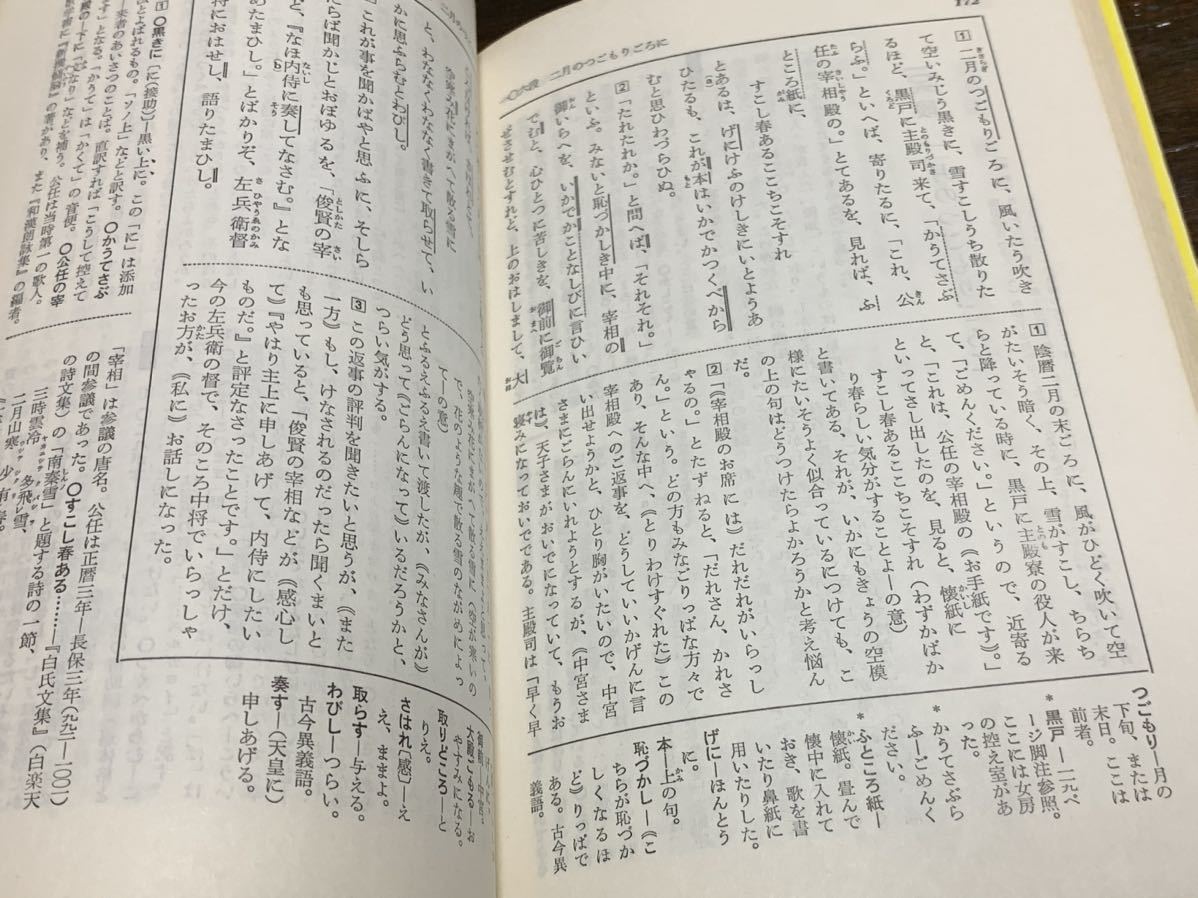 172
一〇六段 二月のつごもりごろに
1 二月のつごもりごろに、風いたう吹き
て空いみじう黒きに、雪すこしうち散りた
るほど、黒戸に主殿司来て、「かうてさぶ
らふ。」といへば、寄りたるに、「これ、公
任の宰相殿の。」とてあるを、見れば、ふ
ところ紙に、
すこし春あるここちこそすれ
とあるは、げにけふのけしきにいとようあ
ひたるも、これが本はいかでかつくべから
むと思ひわづらひぬ。
2 「たれたれか。」と問へば、「それそれ。」
といふ。みないと恥づかしき中に、宰相の
御いらへを、いかでかことなしびに言ひい
でむと、心ひとつに苦しきを、御前に御覧
ぜさせむとすれど、上のおはしまして、大
1 陰暦二月の末ごろに、風がひどく吹いて空
がたいそう暗く、その上、雪がすこし、ちらち
らと降っている時に、黒戸に主殿寮の役人が来
て、「ごめんください。」というので、近寄る
と、「これは、公任の宰相殿の《お手紙です》。」
といってさし出したのを、見ると、懐紙に
すこし春あるここちこそすれ(わずかばか
り春らしい気分がすることよーの意)
と書いてある、それが、いかにもきょうの空模
様にたいそうよく似合っているにつけても、こ
の上の句はどうつけたらよかろうかと考え悩ん
だ。
2 「《宰相殿のお席には》だれだれがいらっし
ゃるの。」とたずねると、「だれさん、かれさ
ん。」という。どの方もみなごりっぱな方々で
あり、そんな中へ、《とりわけすぐれた》この
宰相殿へのご返事を、どうしていいかげんに言
い出せようかと、ひとり胸がいたいので、中宮
さまにごらんにいれようとするが、《中宮さま
は》、天子さまがおいでになっていて、もうお
寝みになっておいでである。主殿司は「早く早
つごもり―月の
下旬、または
末日。ここは
前者。
*黒戸―二九ペ
ージ脚注参照。
ここには女房
の控え室があ
った。
*かうてさぶら
ふ―ごめんく
ださい。
*ふところ紙―
懐紙。畳んで
懐中に入れて
おき、歌を書
いたり鼻紙に
用いたりした。
げに―ほんとう
に。
本―上の句。
恥づかし―《こ
ちらが恥づか
しくなるほ
ど》りっぱで
ある。古今異
義語。
空寒み花にまがへて散る雪に
と、わななくわななく書きて取らせて、い
かに思ふらむとわびし。
これが事を聞かばやと思ふに、そしら
れたらば聞かじとおぼゆるを、「俊賢の宰
相など、『なほ内侍に奏してなさむ。』とな
む定めたまひし。」とばかりぞ、左兵衛督
の中将におはせし、語りたまひし。
で、花のような趣で散る雪のながめによっ
て―の意)
とふるえふるえ書いて渡したが、《みなさんが》
どう思って《ごらんになって》いるだろうかと、
つらい気がする。
3 この返事の評判を聞きたいと思うが、《また
一方》もし、けなされるのだったら聞くまいと
も思っていると、「俊賢の宰相などが《感心し
て》『やはり主上に申しあげて、内侍にしたい
ものだ。』と評定なさったことです。」とだけ、
今の左兵衛の督で、そのころ中将でいらっしゃ
ったお方が、《私に》お話しになった。
大殿ごもる―お
やすみになる。
取りどころ―と
りえ。
さはれ(感)―え
え、ままよ。
取らす―与える。
わびし―つらい。
古今異義語。
奏す―(天皇に)
申しあげる。
1 〇黒きに(「に」接助)―黒い上に。この「に」は添加
とよばれるもの。「ソノ上」などと訳す。〇かうてさぶ
「宰相」は参議の唐名。公任は正暦三年―長保三年(九九二―一〇〇一)
の間参議であった。〇すこし春ある……―『白氏文集』(白楽天
の詩文集)の「南秦雪」と題する詩の一節、
三時雲冷多飛雪、
二月山寒少有春。